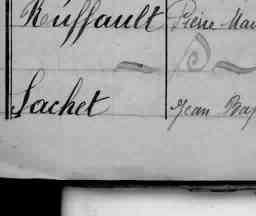 Ruffault Pierre Mar
Lachet Jean Bap